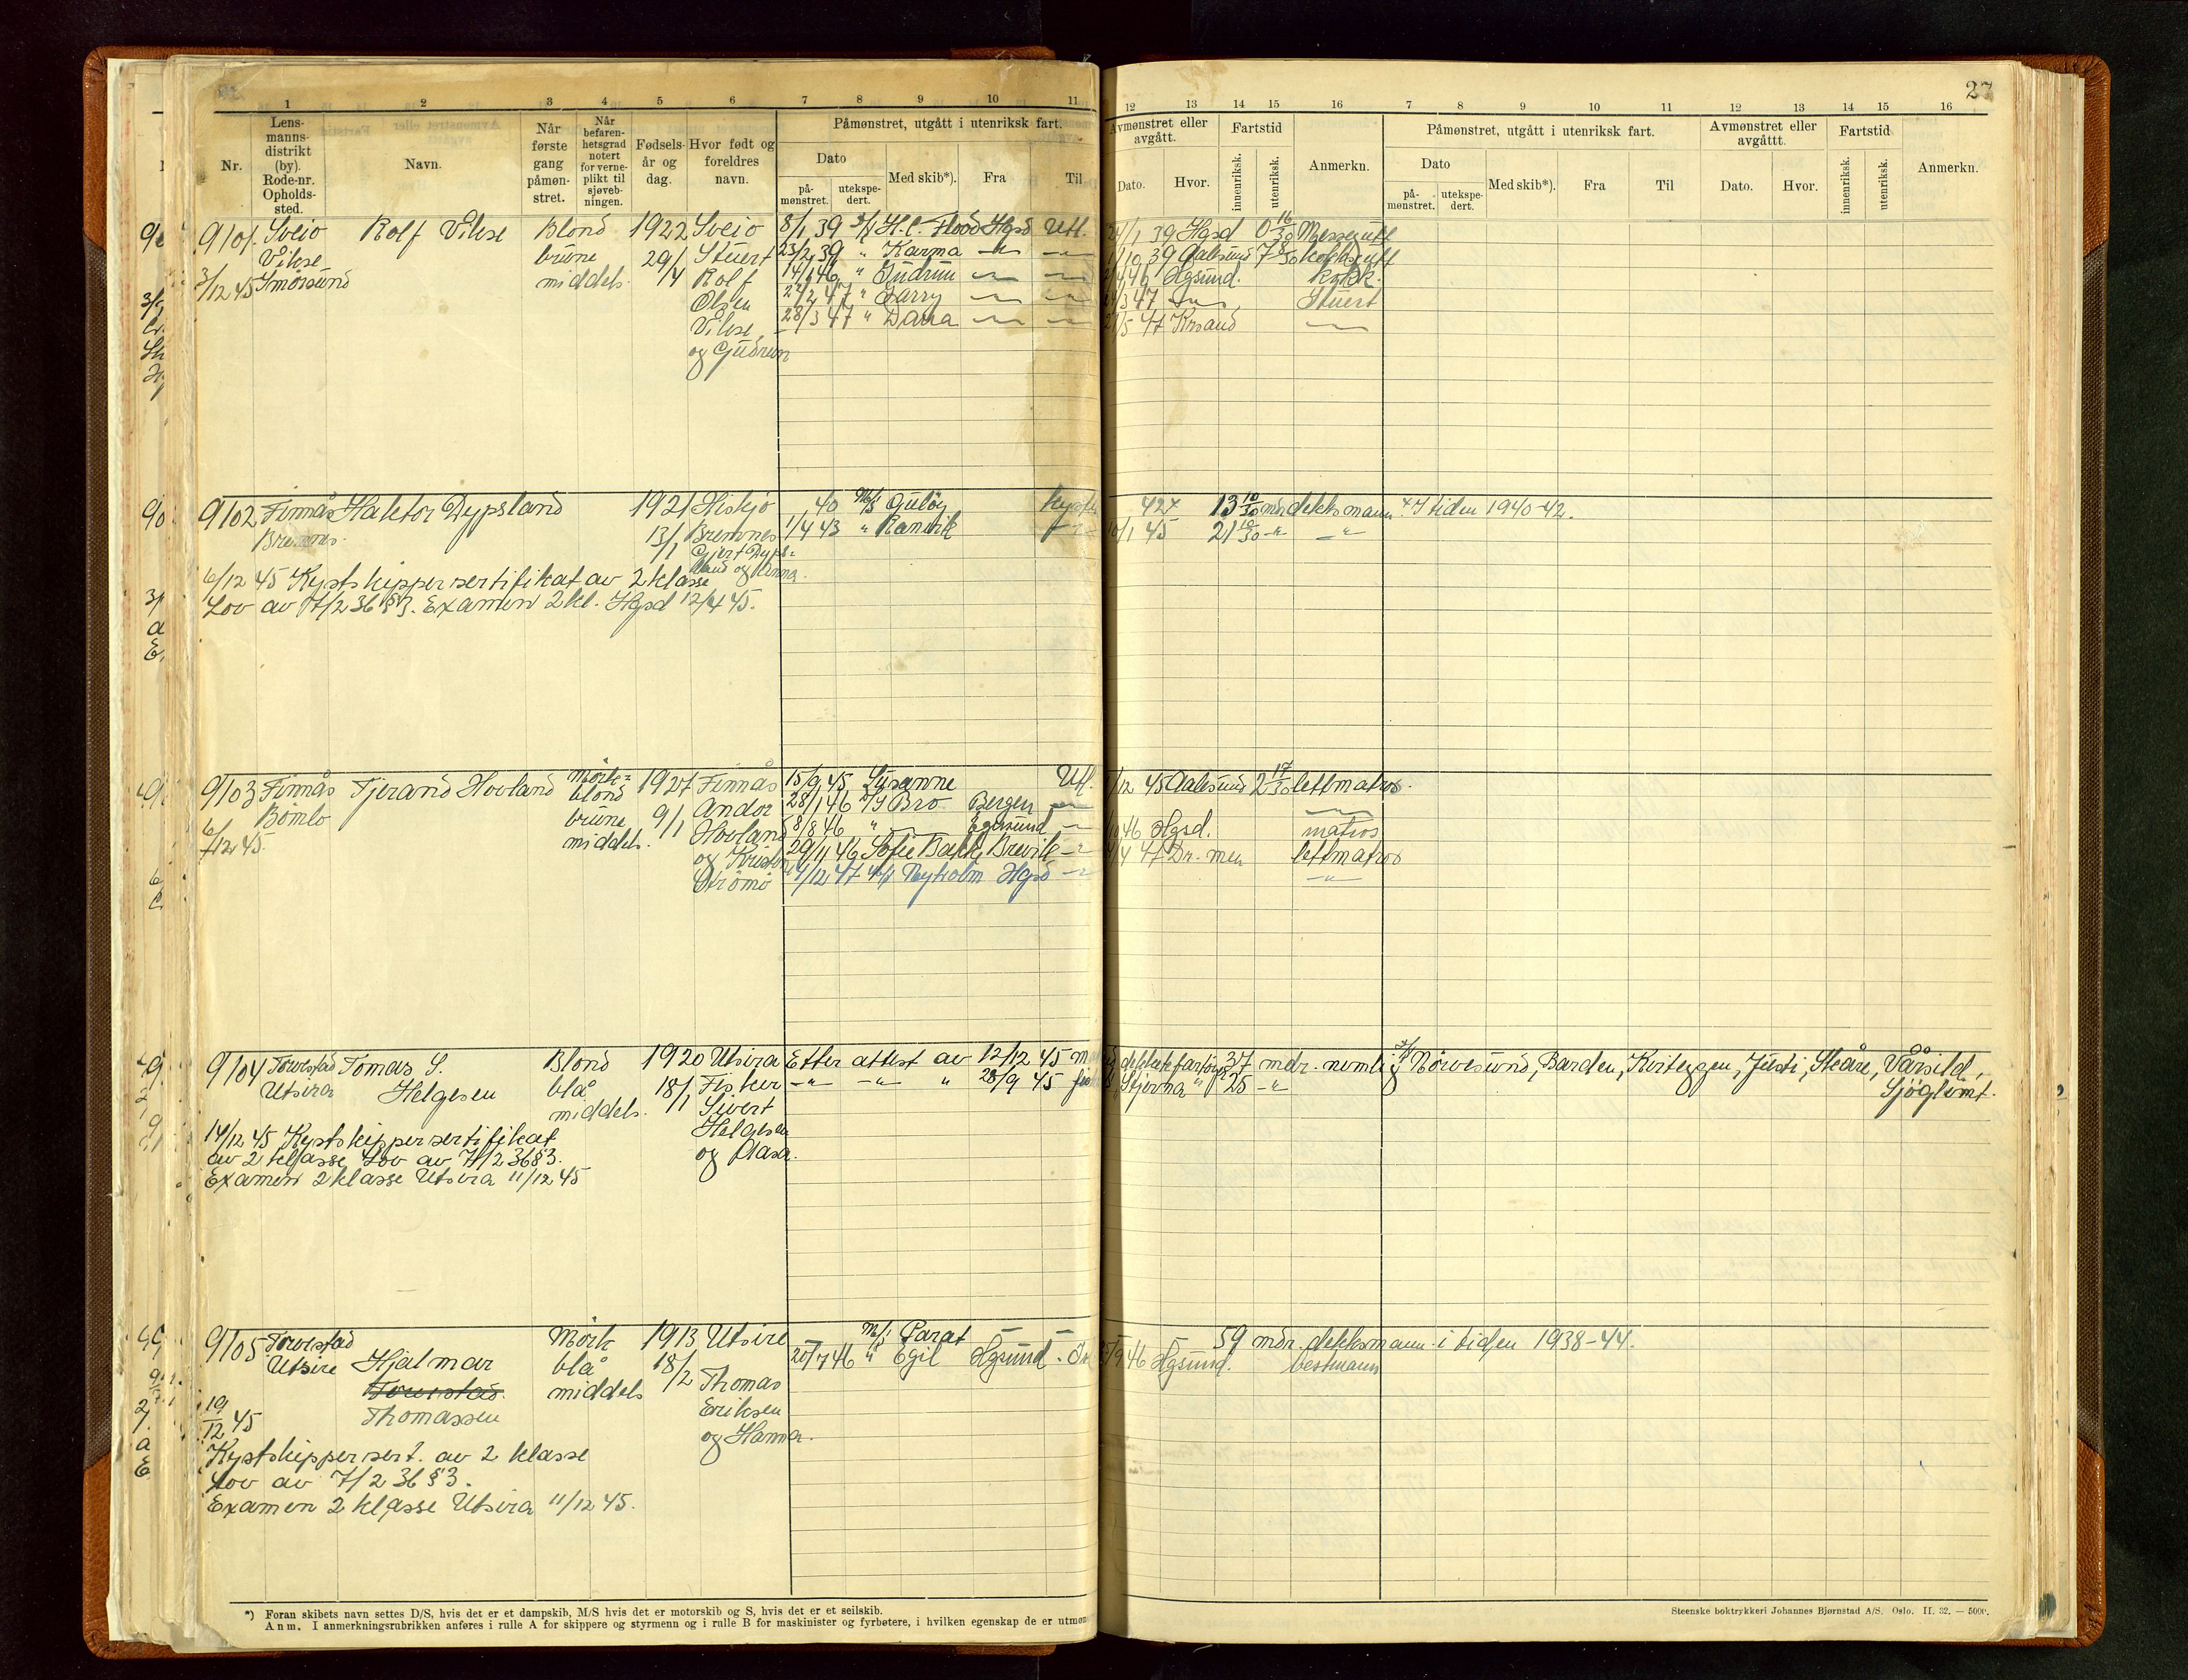 27
1 2 3 4 5 6 7 8 9 10 11
12 13 14 15 16 7 8 9 10 11 12 13 14 15 16
Nr.
Lens-
manns-
distrikt
(by).
Rode-nr.
Opholds-
sted.
Navn.
Når
første
gang
påmøn-
stret.
Når
befaren-
hetsgrad
notert
for verne-
plikt til
sjøveb-
ningen.
Fødsels-
år og
dag.
Hvor født og
foreldres
navn.
Påmønstret, utgått i utenriksk fart.
Dato
på-
mønstret.
utekspe-
dert.
Med skib*).
Fra
Til
Avmønstret eller
avgått.
Dato.
Hvor.
Fartstid
innenriksk.
utenriksk.
Anmerkn.
Påmønstret, utgått i utenriksk fart.
Dato
på-
mønstret.
utekspe-
dert.
Med skib*).
Fra
Til
Avmønstret eller
avgåttt.
Dato.
Hvor.
Fartstid
innenriksk.
utenriksk.
Anmerkn.
9101. Sveio Rolf Vikse Blond 1922 Sveio 8/1 39 H.C. Flood Hgsd Utl. 39 Hgsd 0 16/30 Messegutt
Vikse brune 29/4 Stuert 23/2 39 " Karma 10 39 Aalesund 7 kokksgutt
3/12 45 Smörsund middels Rolf 14/1 46 " Gudrun 46 Hgsund. kokk.
Olsen 22/2 47 " Harry 3 47 Stuert
Vikse 28/3 47 " Dana 5 47 Krsand
og Gudrun
9102 Finnås Haktor Dypsland 1921 Hiskjo 40 M/S Gulöy 42 x 13 10/30 mdr dekksmann x I tiden 1940-42.
Bremnes. 13/1 Bremnes 1/4 43 " Ramvik 10/1 45 21 10/30 -"- -"-
Gjert Dyps=
land og Anna.
6/12 45 Kystskippersertifikat av 2 klasse
Lov av 7/2 36 §3. Examen 2 kl. Hgsd 12/4 45.
9103 Finnås Tjerand Hovland Mörk= 1927 Finnås 15/9 45 Susanne Utl. /12 45 Aalesund 2 17/30 lettmatros.
Bömlo blond 9/1 Andor 28/1 46 Bro Bergen
brune Hovland 8/8 46 " Egersund 46 Hgsd. matros
6/12 45. middels. og Kristin 29/11 46 Sofie Bakke Brevik 4 47 Dr. men lettmatros
Strömö 4/12 47 Nyholm Hgsd -"-
9104 Torvestad Tomas S. Blond 1920 Utsira Etter attest av 12/12 45 dekksfartöy 37 mdr. nemlig Nörvesund, Barden, Kviteggen, Justi, Skåre, Vårsild,
Utsira Helgesen blå 18/1 Fisker -"- -"- " 28/9 45 Stjerna " 25 -"- Sjöglimt.
middels. Sivert
Helgesen
og Aasa.
14/12 45 Kystskippersertifikat
av 2 klasse Lov av 7/2 36 §3.
Examen 2 klasse Utsira 11/12 45
9105 Torvestad Mörk 1913 Utsire M/S Parat 59 mdr. dekksmann i tiden 1938-44.
Utsire Hjalmar blå 18/2 20/7 46 " Egil Hgsund. /9 46 Hgsund. bestmann
Torvestad middels Thomas
19/12 45 Thomassen Eriksen
og Hanna.
Kystskippersert. av 2 klasse
Lov av 7/2 36 §3.
Examen 2 klasse Utsira 11/12 45.
*) Foran skibets navn settes D/S, hvis det er et dampskib, M/S hvis det er motorskib og S, hvis det er et seilskib.
Anm. I anmerkningsrubrikken anføres i rulle A for skippere og styrmenn og i rulle B for maskinister og fyrbøtere, i hvilken egenskap de er utmøn
Steenske boktrykkeri Johannes Bjørnstad A/S. Oslo. II. 32. — 5000.